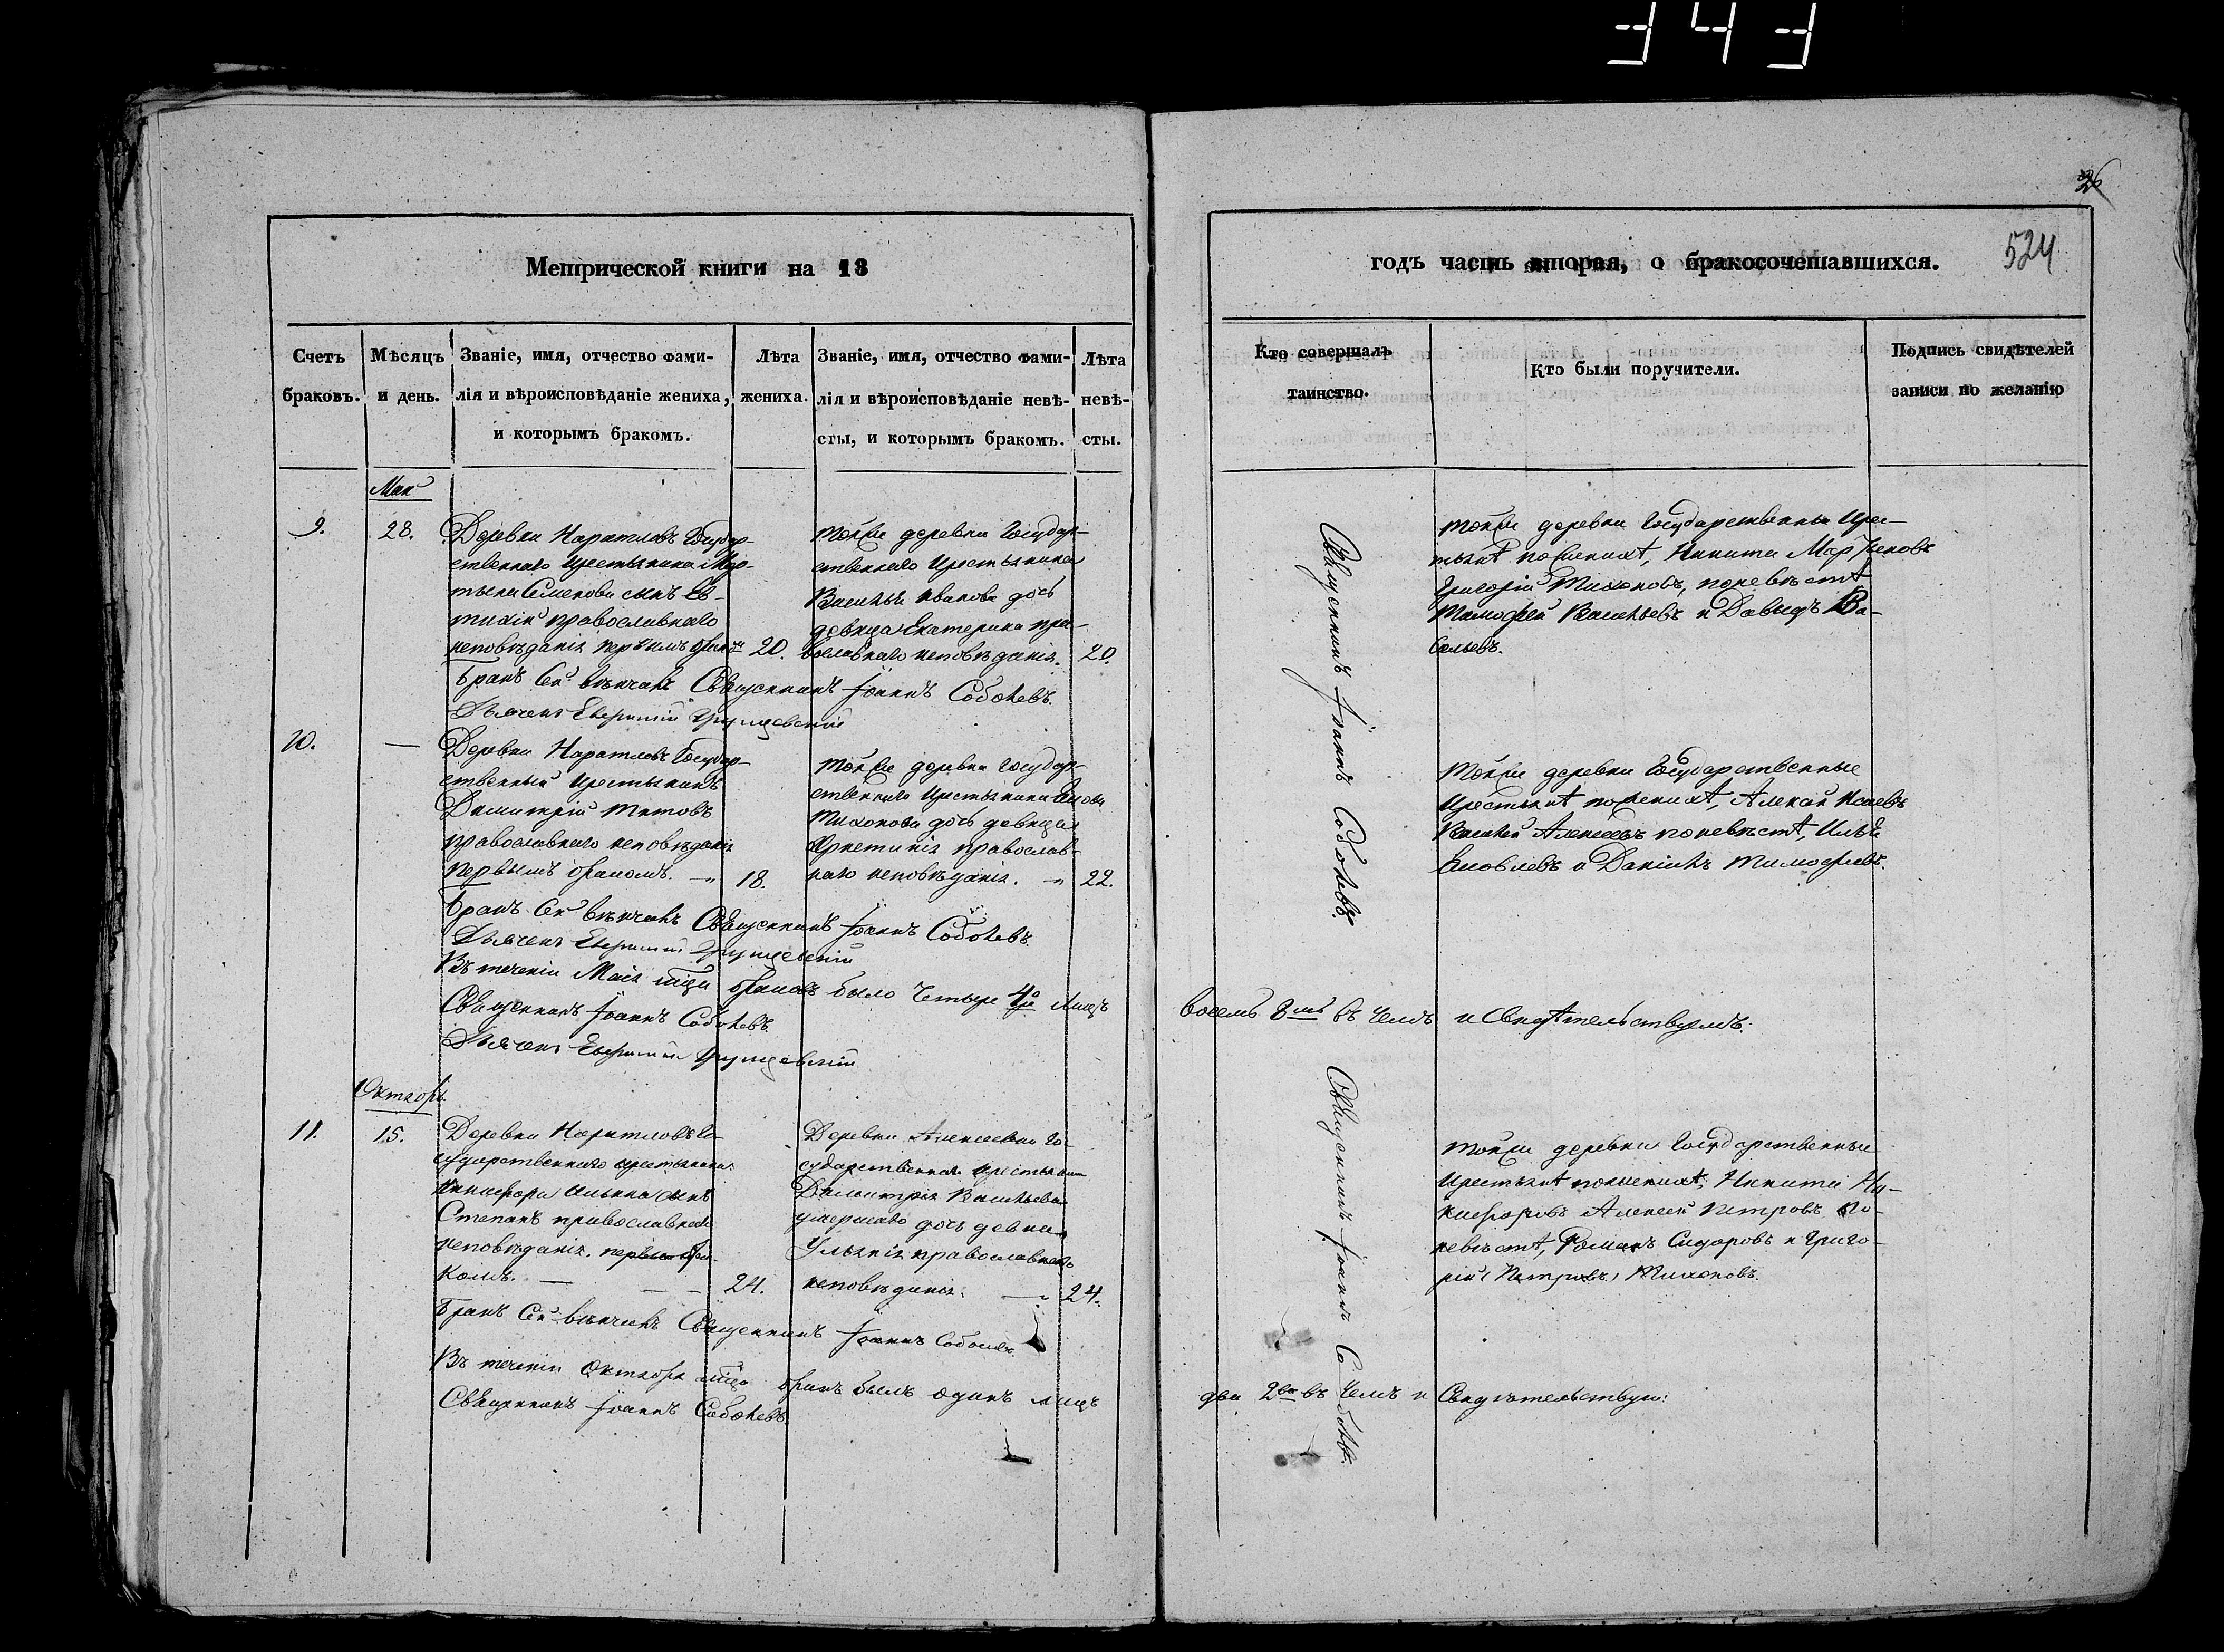 343
36
524
Метрической книги на 18
годъ часть вторая, о бракосочетавшихся.
Счетъ
браковъ.
Мѣсяцъ
и день.
Званіе, имя, отчество фами-
лія и вѣроисповѣданіе жениха,
и которымъ бракомъ.
Лѣта
жениха.
Званіе, имя, отчество фами-
лія и вѣроисповѣданіе невѣ-
сты, и которымъ бракомъ.
Лѣта
невѣ-
сты.
Кто совершалъ
таинство.
Кто были поручители.
Подпись свидѣтелей
записи по желанію
Маи
9.
28.
Деревни Наратловъ Государ-
ственнаго крестьянина
Семенова сынъ Ев-
тихій православнаго
исповѣданія первымъ бракомъ
20.
тойже деревни Государ-
ственнаго крестьянина
Василья Иванова дочь
девица Екатерина пра-
вославнаго исповѣданія.
20.
Священникъ Іоаннъ Соболевъ.
тойже деревни Государственныя крес-
тьянѣ поженихѣ, Никита
Григорій Тихоновъ, поневѣстѣ
Тимофей Васильевъ и Давыдъ Ва-
сильевъ.
Бракъ Сей вѣнчалъ Священникъ Іоаннъ Соболевъ.
Дьячекъ
10.
—
Деревни Наратловъ Государ-
ственный крестьянинъ
Димитрій Титовъ
православнаго исповѣданія
первымъ бракомъ. — "
18.
тойже деревни Государ-
ственнаго крестьянина
Тихонова дочь девица
православ-
наго исповѣданія. — "
22.
тойже деревни Государственные
крестьянѣ поженихѣ, Алексей Исаевъ
Василей Алексеевъ поневѣстѣ, Илья
Яковлевъ и Даніилъ Тимофеевъ.
Бракъ Сей вѣнчалъ Священникъ Іоаннъ Соболевъ.
Дьячекъ
Въ теченіи Маія мца браковъ было четыре 4ре лицъ
восемь 8мь въ чемъ и Свидѣтельствуемъ:
Священникъ Іоаннъ Соболевъ
Дьячекъ
Октября.
11.
15.
Деревни Наратловъ Го-
сударственнаго крестьянина
Никифора Ильина сынъ
Степанъ православнаго
исповѣданія. первымъ бра-
комъ. — — —
24.
Деревни Алексеевки Го-
сударственнаго крестьянина
Димитрія Васильева
умершаго дочь девка
Ульянія православнаго
исповѣданія. —
24.
Священникъ Іоаннъ Соболевъ.
тойже деревни Государственные
крестьянѣ поженихѣ, Никита Ни-
кифоровъ Алексей Петровъ по-
невѣстѣ, Романъ Сидоровъ и Григо-
рій (Петровъ) Тихоновъ.
Бракъ Сей вѣнчалъ Священникъ Іоаннъ Соболевъ.
Въ теченіи Октября мца бракъ былъ одинъ лицъ
два 2ва въ чемъ и Свидѣтельствую:
Священникъ Іоаннъ Соболевъ.